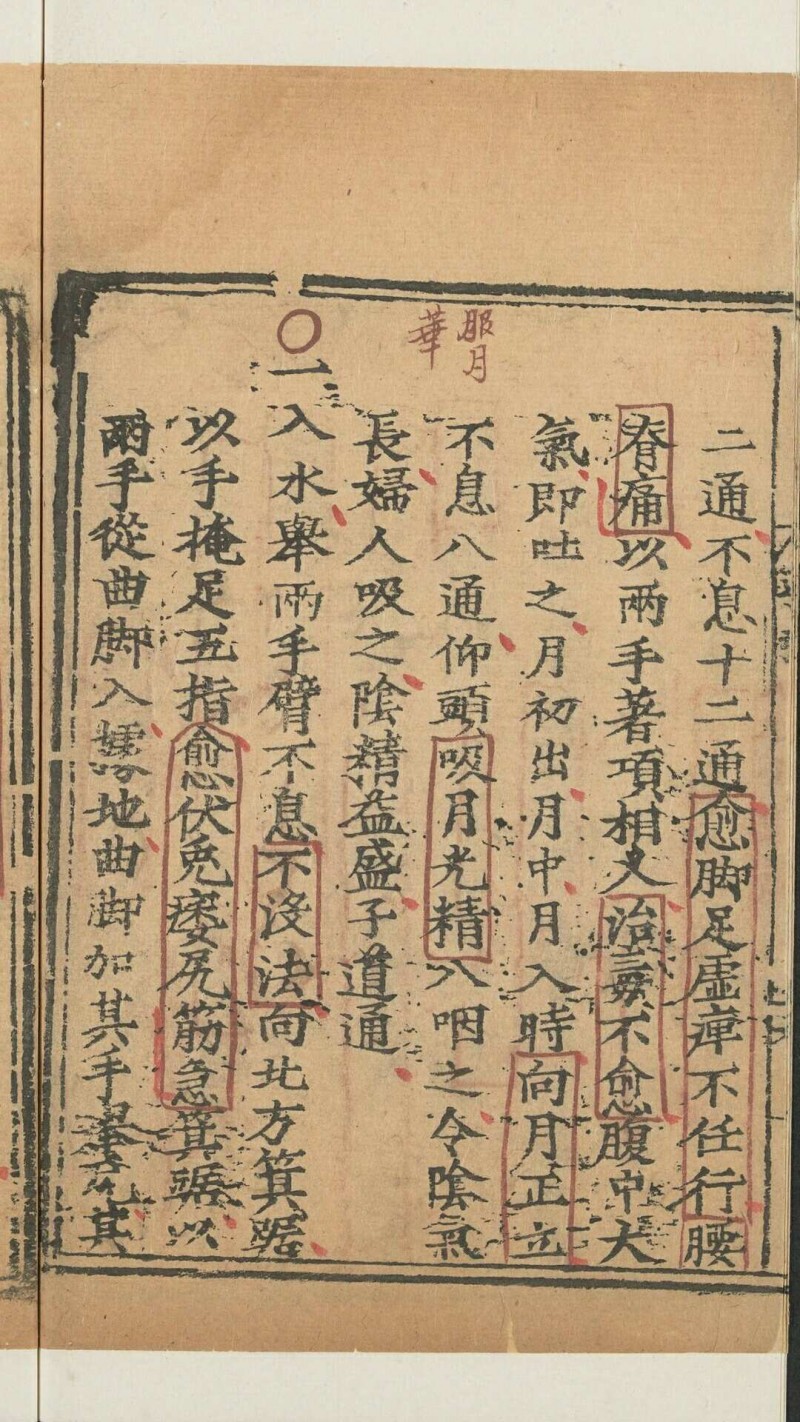 二通不息十二通愈脚足虛痺不任行腰
脊痛以兩手著項相叉治毒不愈腹中大
氣即吐之月初出月中月入時向月正立
不息八通仰頭吸月光精八咽之令陰氣
長婦人吸之陰精益盛子道通
一入水舉兩手臂不息不沒法向北方箕踞
以手掩足五指愈伏兔痿尻筋急箕踞以
兩手從曲脚入據地曲脚加其手舉尻其
服月
華